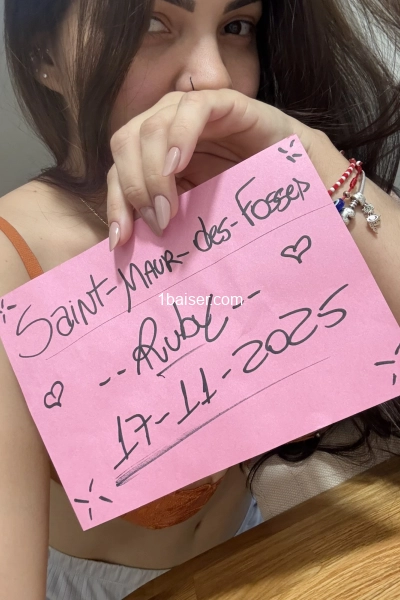 Saint-Maur-des-Fossés
1baiser.com
--Ruby--
17-11-2025